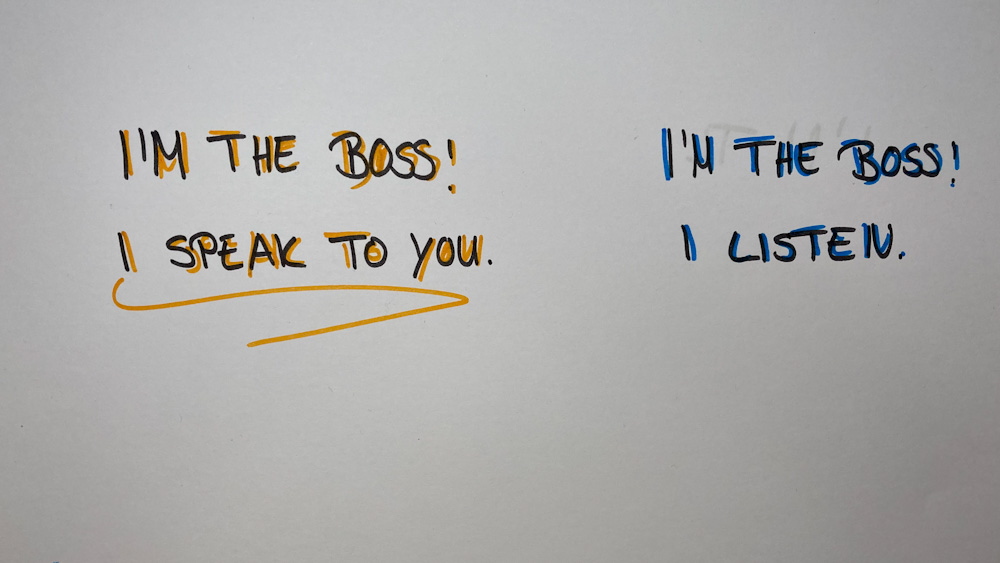 I'M THE BOSS!
I SPEAK TO YOU.
I'M THE BOSS!
I LISTEN.